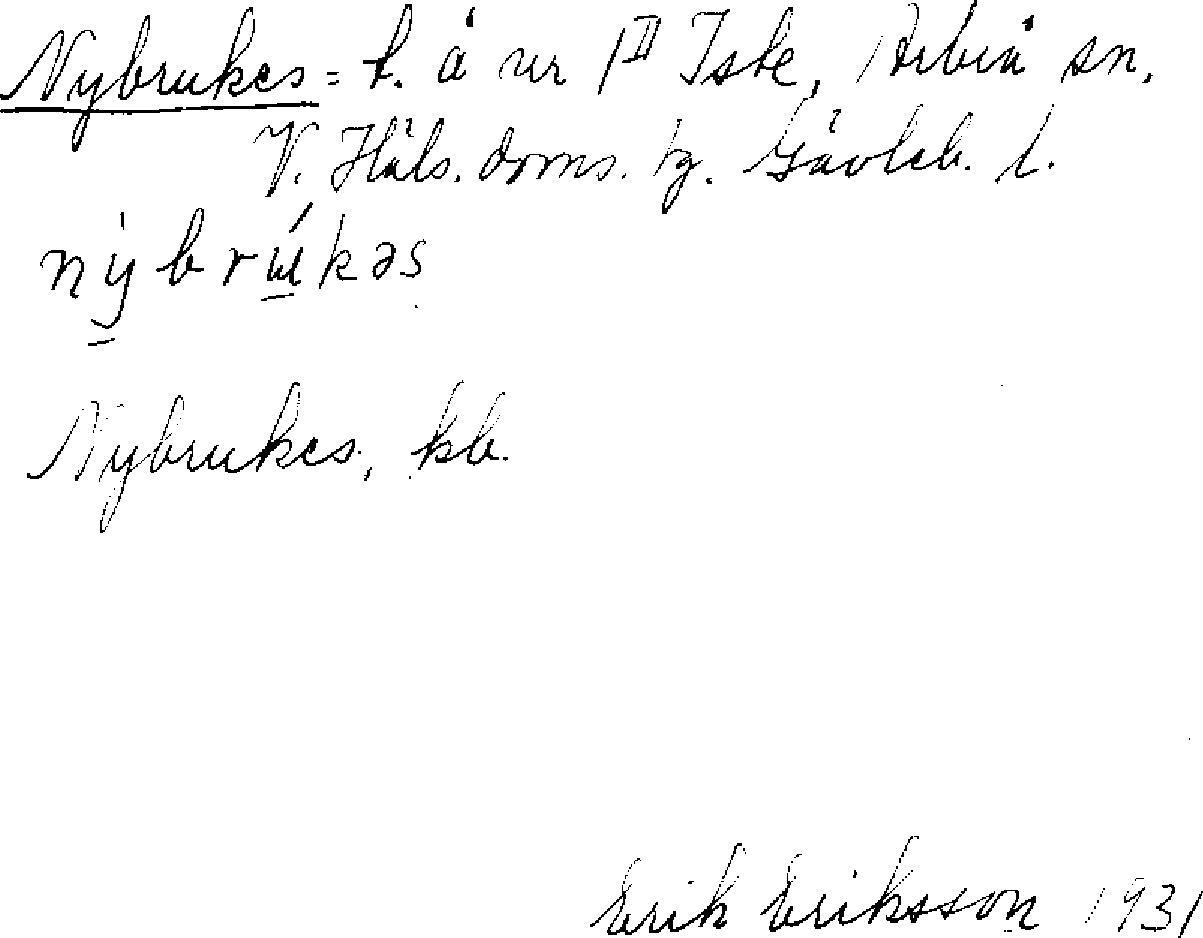 Nybrukes = t. å ur 1ᴵᴵ Iste, Arbrå sn.
V. Häls. doms. tg. Gävleb. l.
nybrukəs
Nybrukes, kb.
Erik Eriksson 1931